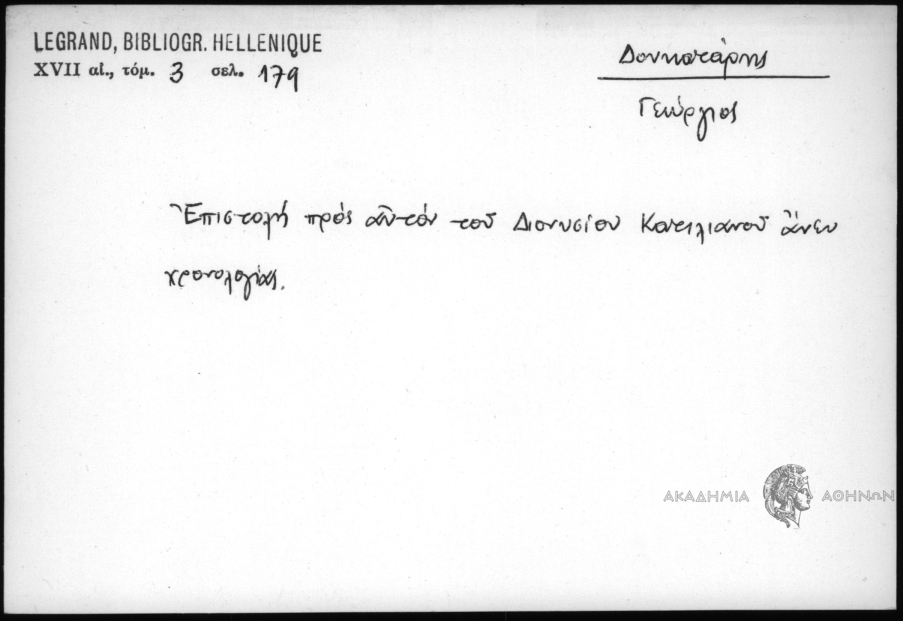 LEGRAND, BIBLIOGR. HELLENIQUE
XVII αἰ., τόμ. 3 σελ. 179
Δουκατάρης
Γεώργιος
Ἐπιστολή πρός αὐτόν τοῦ Διονυσίου Κατιλιανοῦ ἄνευ
χρονολογίας.
ΑΚΑΔΗΜΙΑ ΑΘΗΝΩΝ